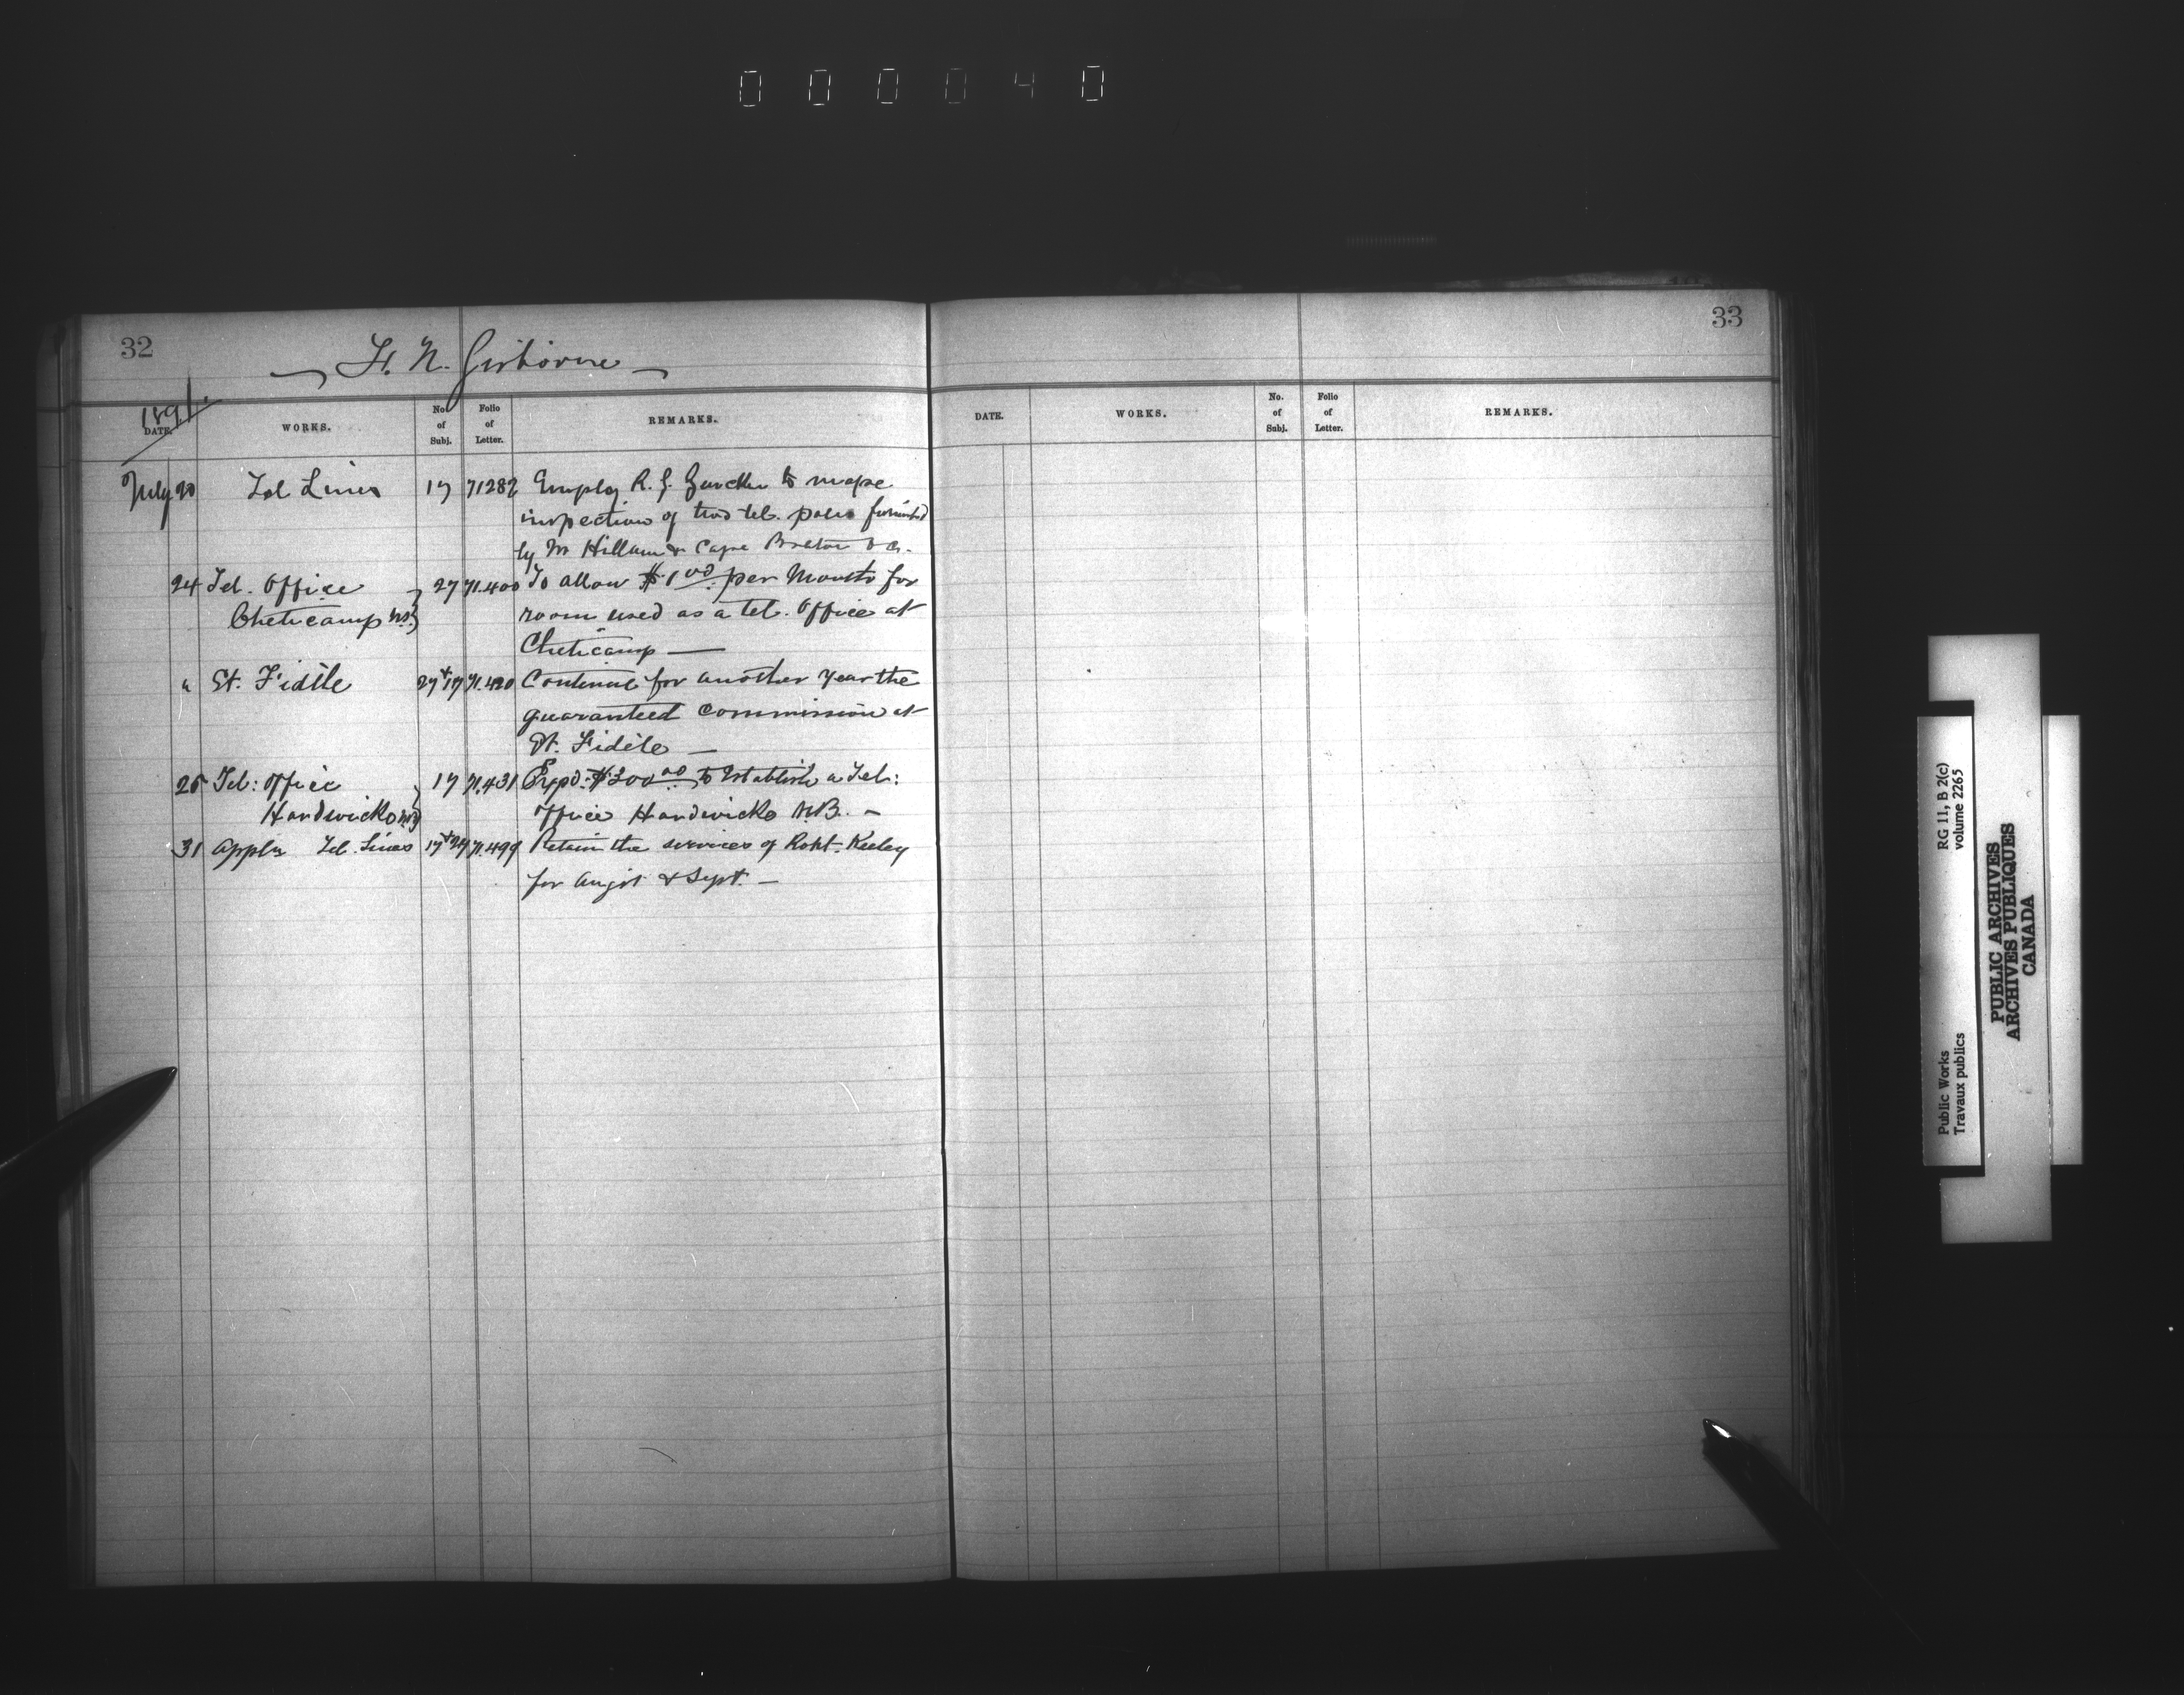 000040
32
F. N. Gisborne
1891.
DATE. WORKS. No. of Subj. Folio of Letter. REMARKS.
July 20 Tel Lines 17 71282 Employ R. J. to make
inspection of tel. poles furnished
by Mr Cape Breton
24 Tel. Office 27 71.400 To allow $1.00 per Month for
Cheticamp N.S. room used as a tel. Office at
Cheticamp —
" St. Fidèle 27+17 71.420 Continue for another year the
guaranteed commission at
St. Fidèle —
25 Tel: Office 17 71.431 Expd: $300.00 to Establish a Tel:
Hardwicke N.B. Office Hardwicke N.B. —
31 Appln Tel. Lines 17+27 71.499 Retain the services of Robt. Keeley
for Augst & Sept. —
33
DATE. WORKS. No. of Subj. Folio of Letter. REMARKS.
Public Works RG 11, B 2(c)
Travaux publics volume 2265
PUBLIC ARCHIVES
ARCHIVES PUBLIQUES
CANADA